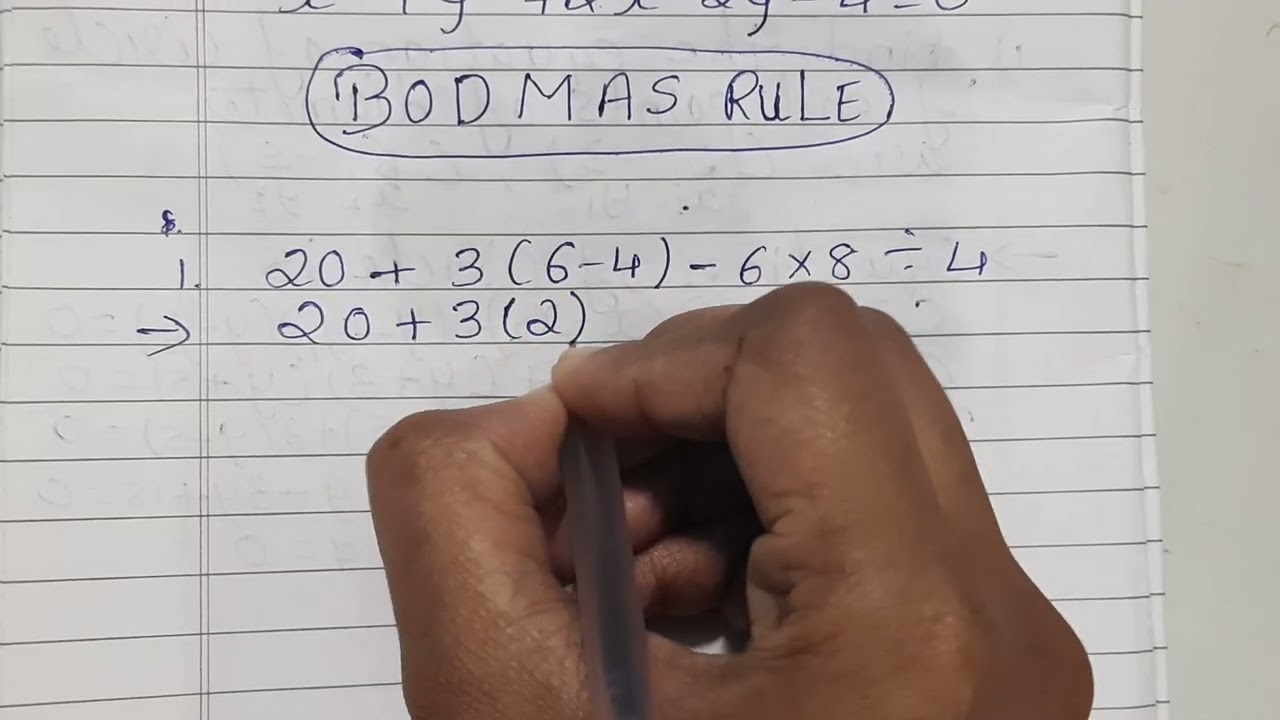 BODMAS RULE
1. 20 + 3(6-4) - 6 × 8 ÷ 4
→ 20 + 3(2)